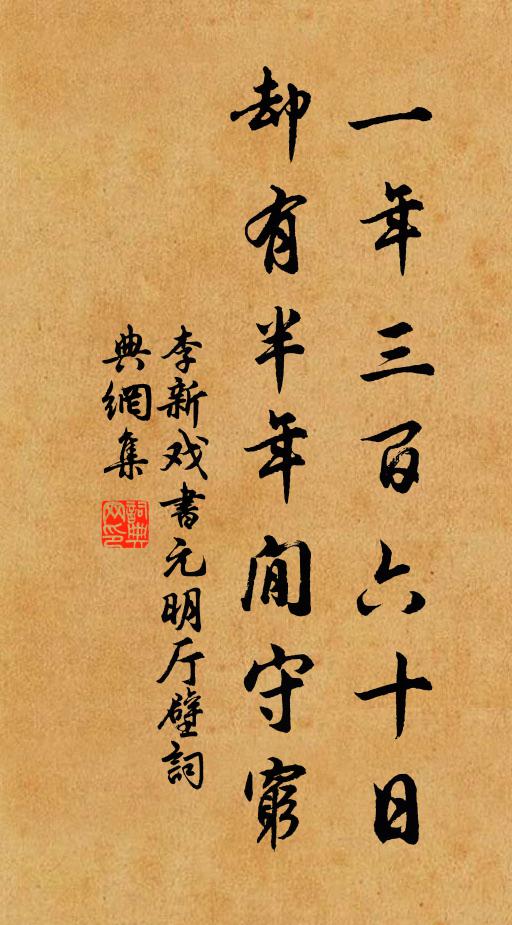 一年三百六十日
却有半年閒守窮
李新戏書元明厅壁詞
典網集
詞典網印